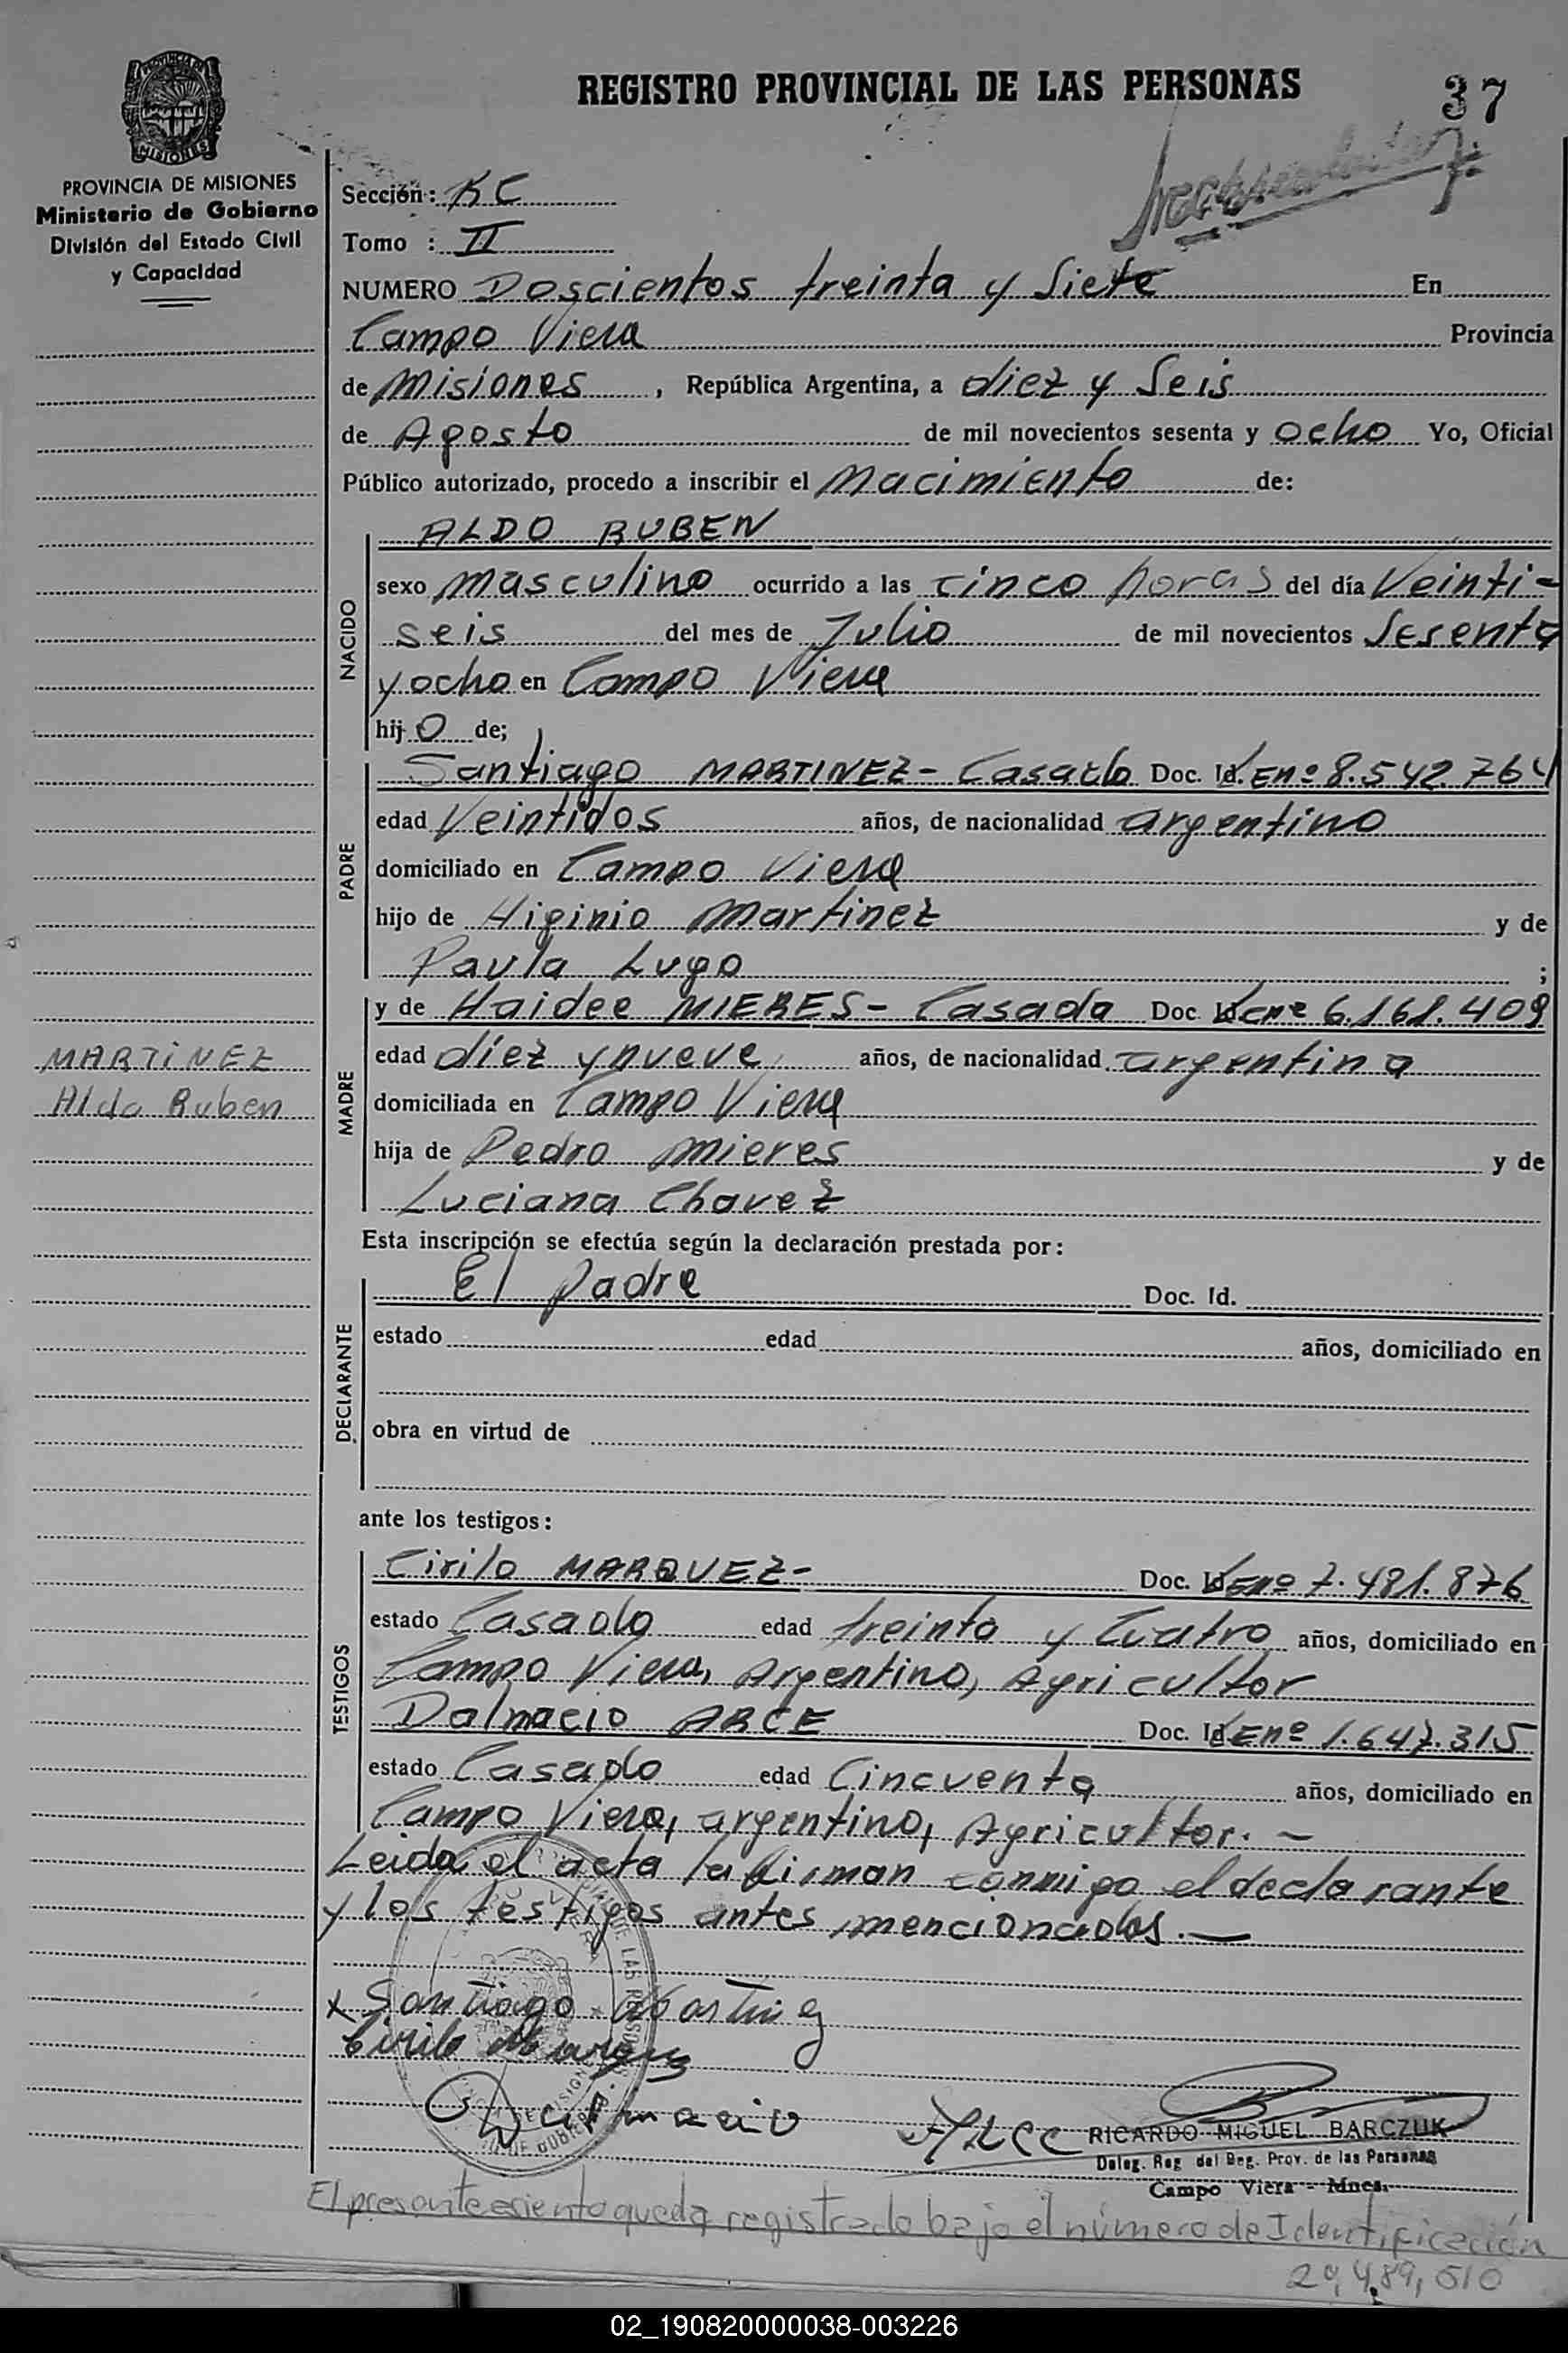 REGISTRO PROVINCIAL DE LAS PERSONAS
37
PROVINCIA DE MISIONES
Ministerio de Gobierno
División del Estado Civil
y Capacidad
Sección: KC
Tomo : II
NUMERO Doscientos treinta y Siete En
Campo Viera Provincia
de Misiones, República Argentina, a diez y Seis
de Agosto de mil novecientos sesenta y ocho Yo, Oficial
Público autorizado, procedo a inscribir el Nacimiento de:
NACIDO
ALDO RUBEN
sexo masculino ocurrido a las cinco horas del día Veinti-
seis del mes de Julio de mil novecientos Sesenta
y ocho en Campo Viera
hijo de;
PADRE
Santiago MARTINEZ- Casado Doc. Id. LEnº 8.542.764
edad Veintidos años, de nacionalidad argentino
domiciliado en Campo Viera
hijo de Higinio Martinez y de
Paula Lugo ;
MADRE
y de Haidee MIERES- Casada Doc Id 6.161.409
edad diez y nueve años, de nacionalidad argentina
domiciliada en Campo Viera
hija de Pedro Mieres y de
Luciana Chavez
MARTINEZ
Aldo Ruben
Esta inscripción se efectúa según la declaración prestada por:
DECLARANTE
El padre Doc. Id.
estado edad años, domiciliado en
obra en virtud de
ante los testigos:
TESTIGOS
Cirilo MARQUEZ- Doc. Id LEnº 7.481.876
estado Casado edad treinta y Cuatro años, domiciliado en
Campo Viera, Argentino, Agricultor
Dalmacio ARCE Doc. Id LEnº 1.647.315
estado Casado edad Cincuenta años, domiciliado en
Campo Viera, argentino, Agricultor. -
Leida el acta la firman conmigo el declarante
y los testigos antes mencionados. -
x Santiago Martinez
Cirilo Marquez
Dalmacio Arce
RICARDO MIGUEL BARCZUK
Deleg. Reg del Reg. Prov. de las Personas
Campo Viera - Mnes.
El presente asiento queda registrado bajo el número de Identificación
02_190820000038-003226